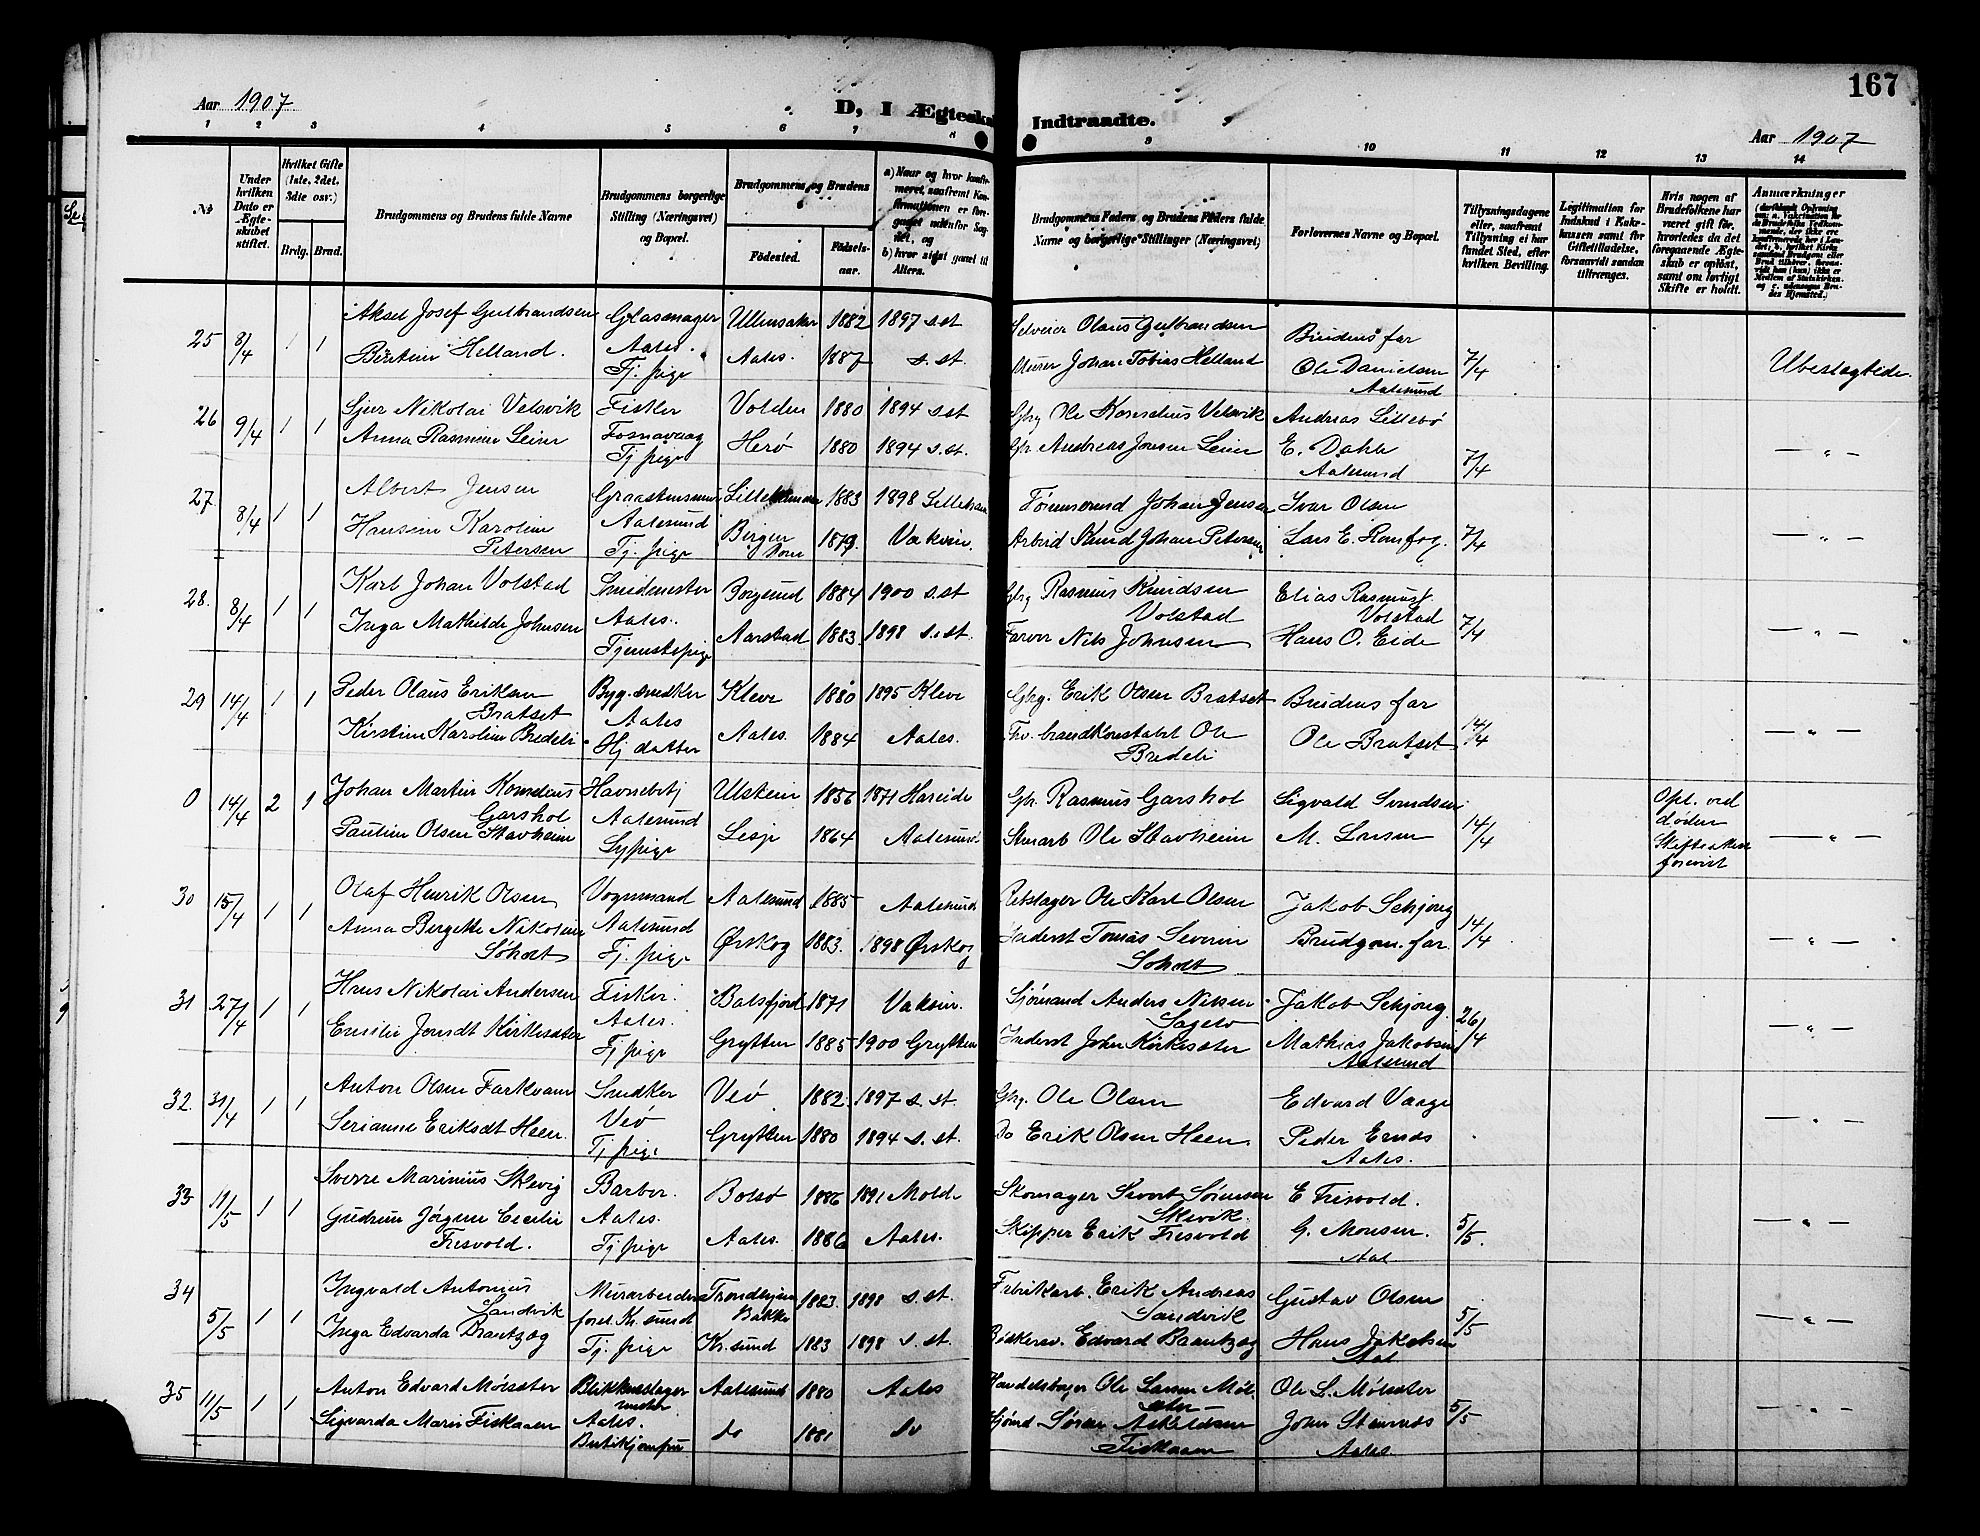 167
Aar 1907
D, I Ægteska
Indtraadte.
Aar 1907
1 2 3 4 5 6 7 8
9 10 11 12 13 14
№
Under hvilken Dato er Ægteskabet stiftet.
Hvilket Gifte (1ste, 2det, 3die osv.)
Brdg.
Brud.
Brudgommens og Brudens fulde Navne
Brudgommens borgerlige Stilling (Næringsvei) og Bopæl.
Brudgommens og Brudens
Födested.
Födselsaar.
a) Naar og hvor konfirmeret, saafremt Konfirmationen er foregaaet udenfor Sognet, og
b) hvor sidst gaaet til Alters.
Brudgommens Faders og Brudens Faders fulde Navne og borgerlige Stillinger (Næringsvei)
Forlovernes Navne og Bopæl.
Tillysningsdagene eller, saafremt Tillysning ei har fundet Sted, efter hvilken Bevilling.
Legitimation for Indskud i Enkekassen samt for Giftetilladelse, forsaavidt saadan tiltrænges.
Hvis nogen af Brudefolkene har været gift för, hvorledes da det foregaaende Ægteskab er oplöst, samt om lovligt Skifte er holdt.
Anmærkninger
25 8/4 1 1
Aksel Josef Gulbrandsen Glasmager Ullensaker 1882 1897 s.st
Olaus Gulbrandsen Brudens far
Helland. Aales. Aales. 1887 s.st.
Murer Johan Tobias Helland Ole Danielsen 7/4
Tj. pige
Aalesund
Ubeslægtede.
26 9/4 1 1
Sjur Nikolai Velsvik Fisker Volden 1880 1894 s.st
Gbrg Ole Kornelius Velsvik Andreas Lillebö
Anna Rasmine Leine Fosnavaag Herö 1880 1894 s.st.
Andreas Jonsen Leine E. Dahle 7/4
Tj pige
Aalesund
— " —
27. 8/4 1 1
Albert Jensen 1883 1898
Johan Jensen Ivar Olsen
Hansine Karoline Aalesund 1879. Vaksin.
Knud Johan Petersen Lars E. 7/4
Petersen Tj. pige
— " —
28. 8/4 1 1
Karl Johan Volstad Smedmester Borgund 1884 1900 s.st
Gbrg Rasmus Knudsen Elias Rasmus.
Volstad Volstad
Inga Mathilde Johnsen Aales. Aarstad 1883. 1898 s.st.
Farver Nils Johnsen Hans O. Eide 7/4
Tjenestepige
— " —
29 14/4 1 1
Peder Olaus Eriksen Byg.snedker Kleve 1880 1895 Kleve
Gbrg. Erik Olsen Bratset Brudens far
Bratset Aales
Kirstine Karoline Bredeli Hj datter Aales. 1884 Aales.
Fhv. brandkonstabel Ole Ole Bratset 14/4
Bredeli
— " —
0 14/4 2 1
Johan Martin Kornelius Havnebetj Ulstein 1856 1871 Hareide
Rasmus Garshol Sigvald Svendsen
Garshol Aalesund
Pauline Olsen Stavheim Sypige Lesje 1864 Aalesund
Ole Stavheim M. Larsen 14/4
Opl. ved döden
— " —
30 15/4 1 1
Olaf Henrik Olsen Vognmand Aalesund 1885 Aalesund
Rebslager Ole Karl Olsen Jakob Schjong
Anna Bergette Nikoline Aalesund Ørskog 1883. 1898 Ørskog
Inderst Tomas Severin Brudgom. far. 14/4
Söholt Tj. pige
Soholt
— " —
31 27/4 1 1
Hans Nikolai Andersen Fisker. Balsfjord 1871 Vaksin.
Sjömand Anders Nilsen Jakob Schjong
Emilie Jonsdt Kirkesæter Aales. Grytten 1885 1900 Grytten
Inderst John Kirkesæter Mathias Jakobsen 26/4
Tj pige
Aalesund
— " —
32. 31/4 1 1
Anton Olsen Farkvam Snedker Veö 1882. 1897 s.st.
Gbrg. Ole Olsen Edvard Vaage
Serianne Eriksdt Heen. Veö Grytten 1880 1894 s.st.
Do Erik Olsen Heen Peder
Tj pige
Aales.
" —
33 11/5 1 1
Sverre Marinius Skevig Barber. Bolsö 1886 1891 Molde
Skomager Sivert Sörensen E Fresvold.
Skevik.
Gudrun Jörgine Cecilie Aales. Aales. 1886 Aales.
Skipper Erik Fresvold G. Monsen. 5/5.
Fresvold. Tj pige
Aal
— " —
34 5/5 1 1
Ingvald Antonius Murarbeider Trondhjem 1883. 1898 s.st.
Fabrikarb. Erik Andreas Gustav Olsen
Sandvik Kr.sund Bakke
Sandvik
Inga Edvarda Brantzæg Tj. pige Kr.sund 1883 1898 s.st.
Edvard Brantzæg Hans Jakobsen 5/5
Aal
— " —
35 11/5 1 1
Anton Edvard Molsæter Blikkenslager Aalesund 1880 Aales
Ole Larsen Mol- Ole L. Molsæter
mester sæter
Sigvarda Marie Fiskaaen Aales. do 1881 do
Sören Askildsen John 5/5
Butikjomfru Fiskaaen Aales.
— " —